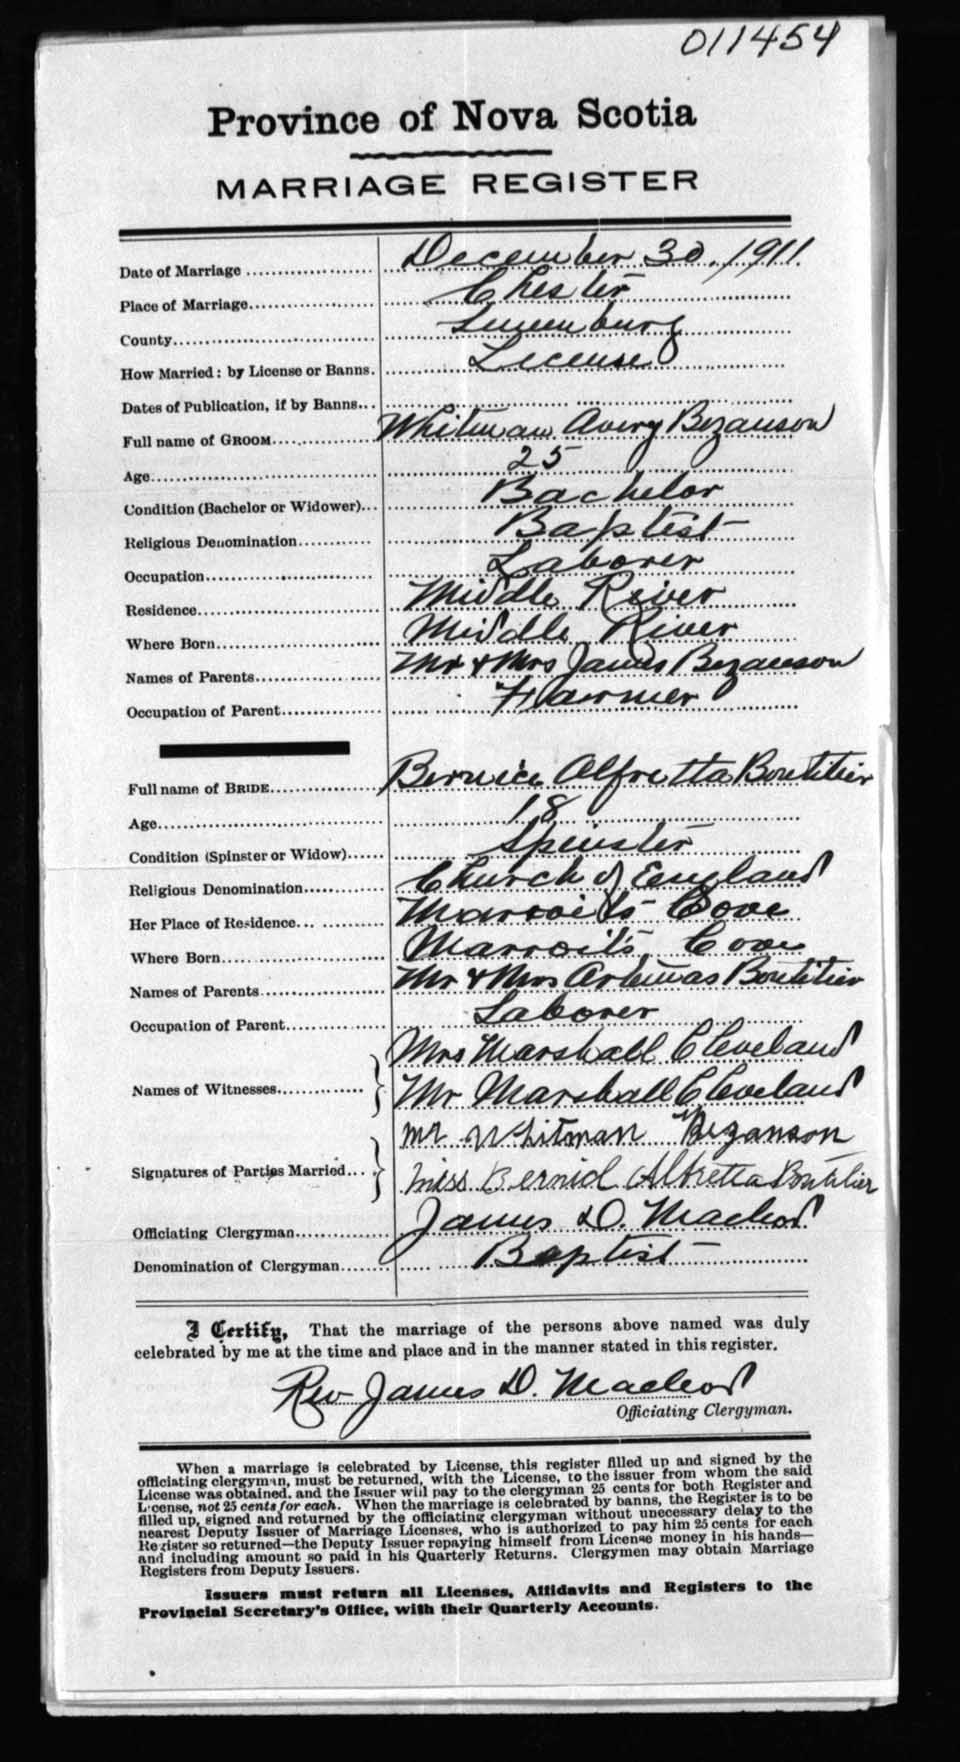 011454
Province of Nova Scotia
MARRIAGE REGISTER
Date of Marriage ... December 30, 1911.
Place of Marriage ... Chester
County ... Lunenburg
How Married: by License or Banns. ... License
Dates of Publication, if by Banns...
Full name of GROOM ... Whitman Avery Bezanson
Age ... 25
Condition (Bachelor or Widower) ... Bachelor
Religious Denomination ... Baptist
Occupation ... Laborer
Residence ... Middle River
Where Born ... Middle River
Names of Parents ... Mr & Mrs James Bezanson
Occupation of Parent ... Farmer
Full name of BRIDE ... Bernice Alfretta Boutilier
Age ... 18
Condition (Spinster or Widow) ... Spinster
Religious Denomination ... Church of England
Her Place of Residence ... Marroits Cove
Where Born ... Marroit's Cove
Names of Parents ... Mr & Mrs Artemas Boutilier
Occupation of Parent ... Laborer
Names of Witnesses ... Mrs Marshall Cleveland
Mr Marshall Cleveland
Signatures of Parties Married ... Mr Whitman Bezanson
Miss Bernid Alfretta Boutilier
Officiating Clergyman ... James D. Macleod
Denomination of Clergyman ... Baptist
I Certify, That the marriage of the persons above named was duly
celebrated by me at the time and place and in the manner stated in this register.
Rev James D. Macleod
Officiating Clergyman.
When a marriage is celebrated by License, this register filled up and signed by the
officiating clergyman, must be returned, with the License, to the issuer from whom the said
License was obtained. and the Issuer will pay to the clergyman 25 cents for both Register and
License, not 25 cents for each. When the marriage is celebrated by banns, the Register is to be
filled up, signed and returned by the officiating clergyman without unnecessary delay to the
nearest Deputy Issuer of Marriage Licenses, who is authorized to pay him 25 cents for each
Register so returned—the Deputy Issuer repaying himself from License money in his hands—
and including amount so paid in his Quarterly Returns. Clergymen may obtain Marriage
Registers from Deputy Issuers.
Issuers must return all Licenses, Affidavits and Registers to the
Provincial Secretary's Office, with their Quarterly Accounts.